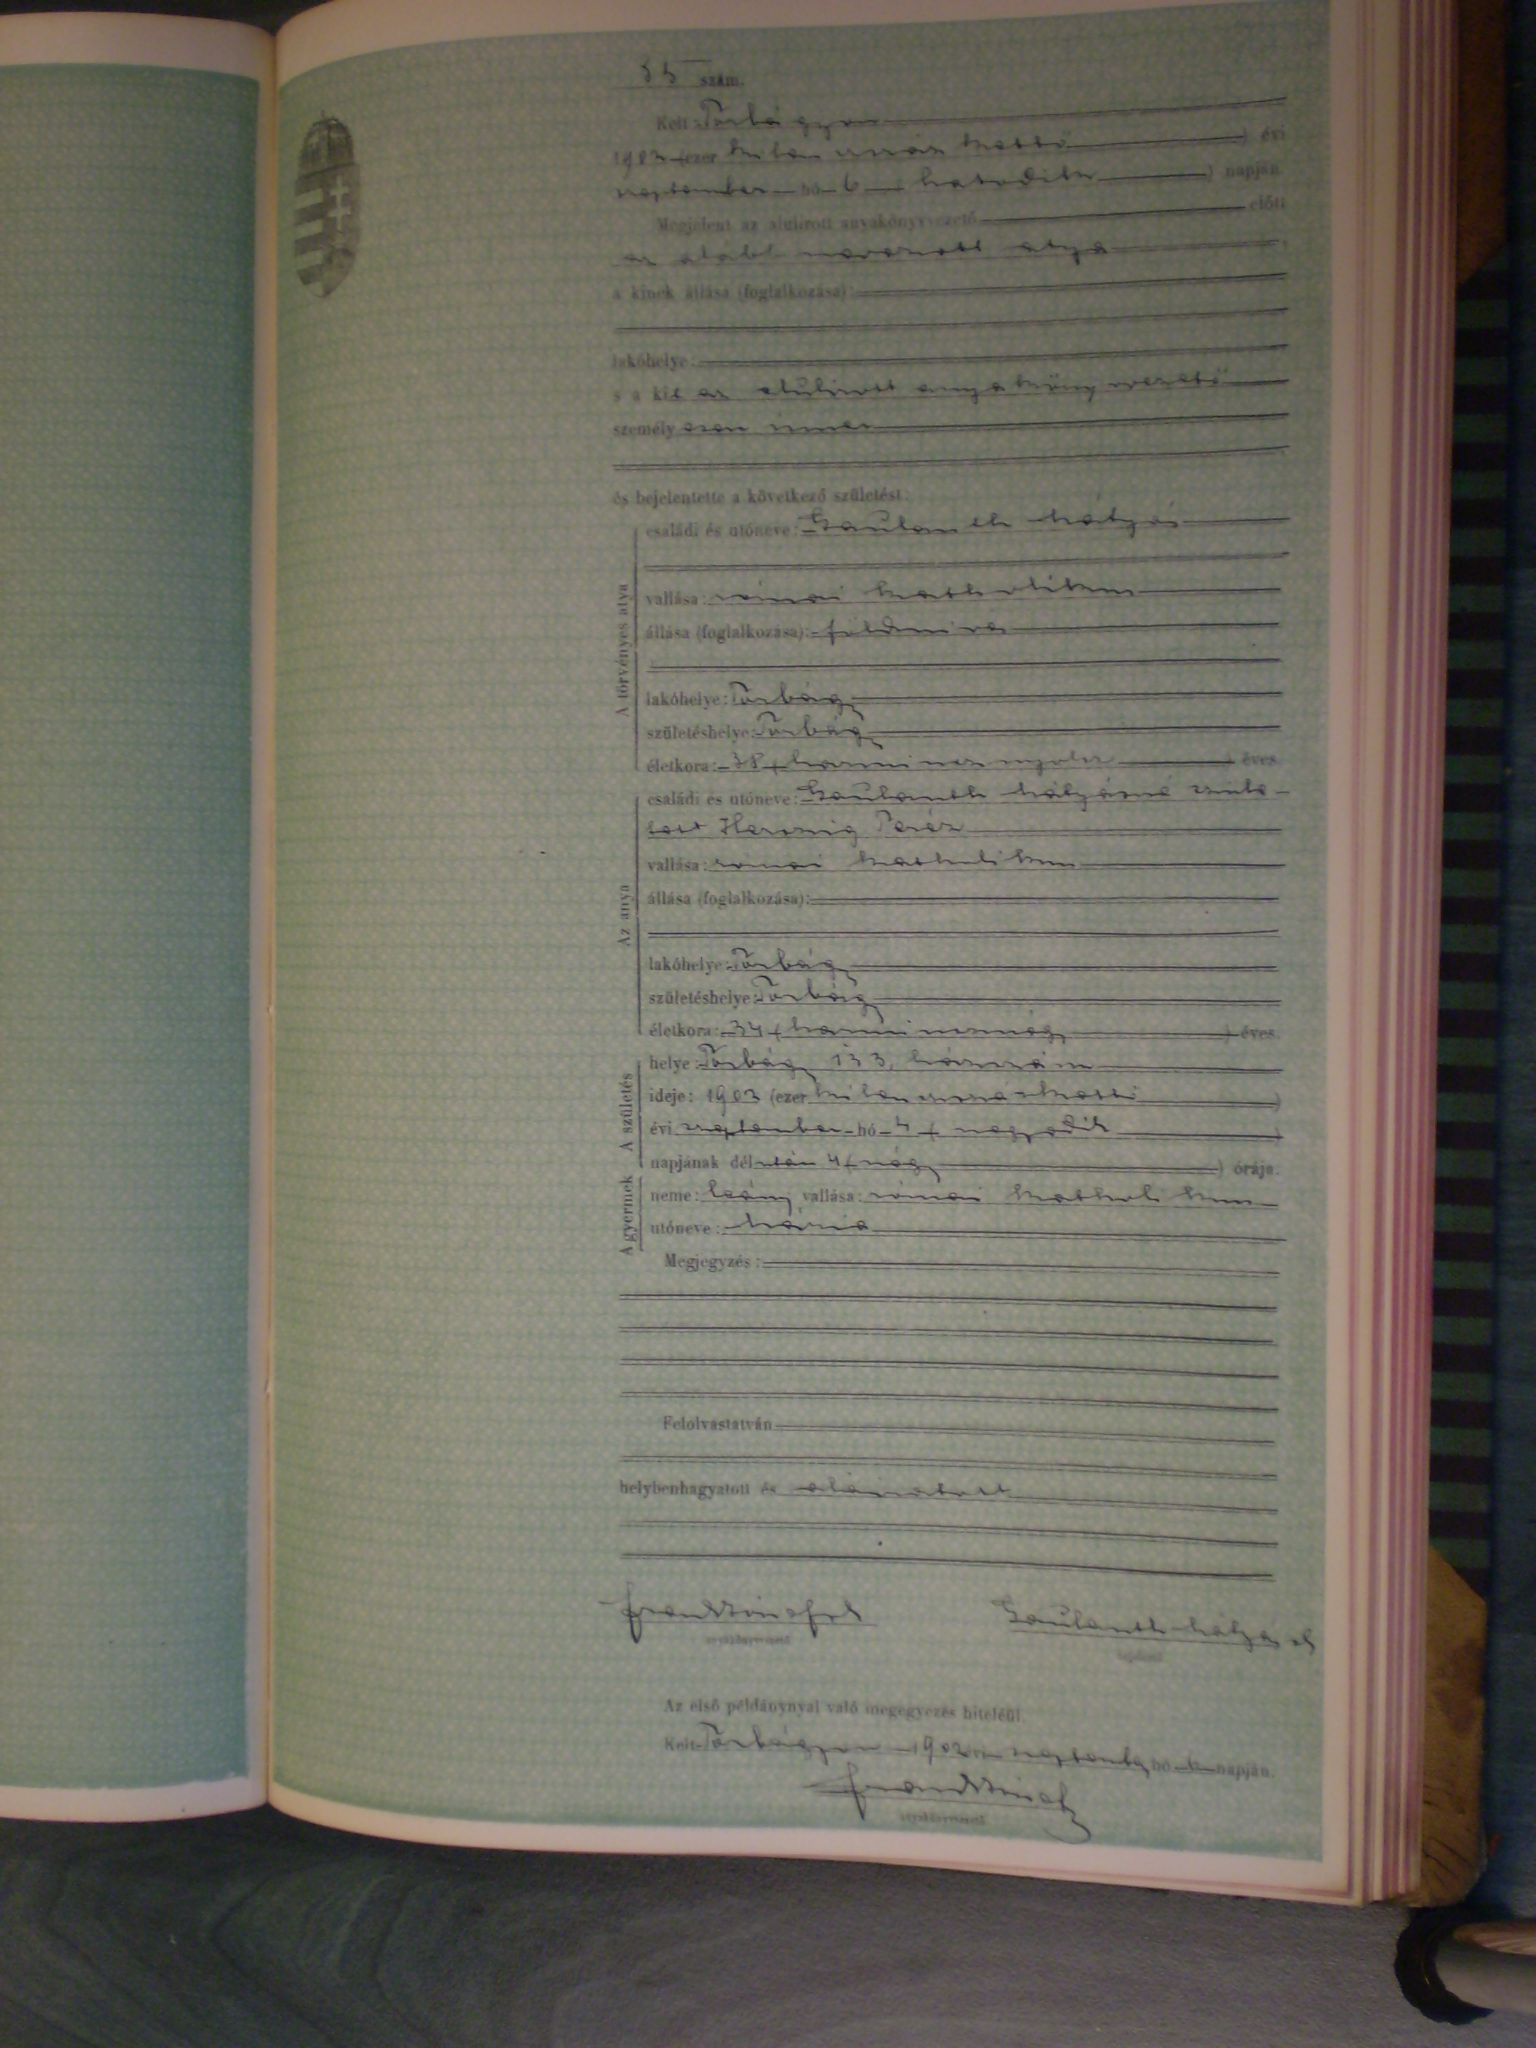 85 szám.
Kelt Torbágyon
1902 (ezer kilenczszáz kettő) évi
szeptember hó 6 (hatodik) napján.
Megjelent az alulirott anyakönyvvezető előtt
az alább nevezett atya
a kinek állása (foglalkozása):
lakóhelye:
s a kit az alulirott anyakönyvvezető
személyesen ismer
és bejelentette a következő születést:
A törvényes atya
családi és utóneve: Mátyás
vallása: római katholikus
állása (foglalkozása): földmives
lakóhelye: Torbágy
születéshelye: Torbágy
életkora: 38 (harmincznyolcz) éves.
Az anya
családi és utóneve: Mátyásné szüle-
tett Herczig Teréz
vallása: római katholikus
állása (foglalkozása):
lakóhelye: Torbágy
születéshelye: Torbágy
életkora: 34 (harmincznégy) éves.
A születés
helye: Torbágy 133. házszám
ideje: 1902 (ezer kilenczszáz kettő)
évi szeptember hó 4 (negyedik)
napjának délután 4 (négy) órája.
A gyermek
neme: leány vallása: római katholikus
utóneve: Mária
Megjegyzés:
Felolvastatván
helybenhagyatott és aláiratott
anyakönyvvezető
Mátyás
bejelentő
Az első példánynyal való megegyezés hiteléül.
Kelt Torbágyon 1902 szeptember hó 6 napján.
anyakönyvvezető